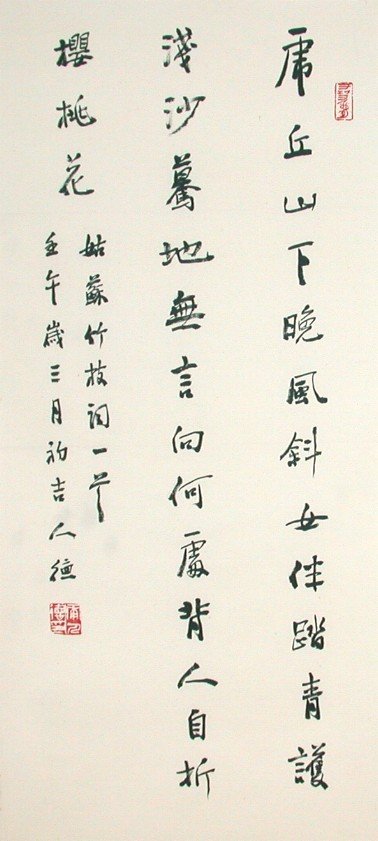 虎丘山下晚風斜女伴踏青護
淺沙驀地無言向何處背人自折
櫻桃花
姑蘇竹枝詞一首
壬午歲三月初吉人德